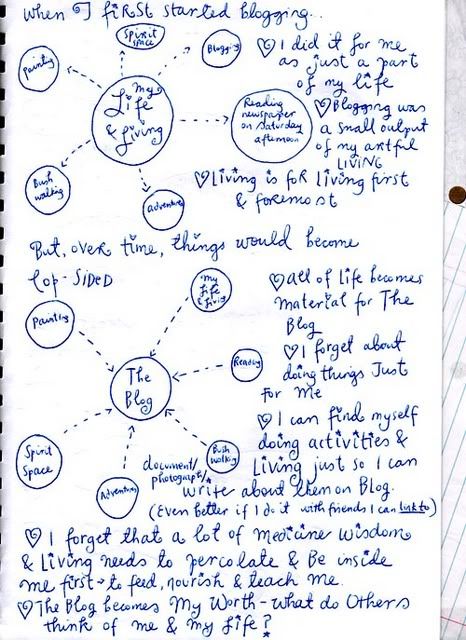 When I first started blogging...
Spirit space
Blogging
Painting
My Life & Living
Reading newspaper on Saturday afternoon
Bush walking
Adventure
♡ I did it for me
as just a part
of my life
♡ Blogging was
a small output
of my artful
LIVING
♡ Living is for living first
& foremost
But, over time, things would become
lop-sided
My Life & Living
Painting
Reading
The Blog
Spirit Space
Adventure
Bush walking
♡ All of life becomes
material for The
Blog
♡ I forget about
doing things Just
For Me
♡ I can find myself
doing activities &
Living just so I can
document/
photograph/
write about them on Blog.
(Even better if I do it with friends I can link to)
♡ I forget that a lot of medicine wisdom
& Living needs to percolate & Be inside
me first → to feed, nourish & teach me.
♡ The Blog becomes My Worth - what do Others
think of me & my Life?